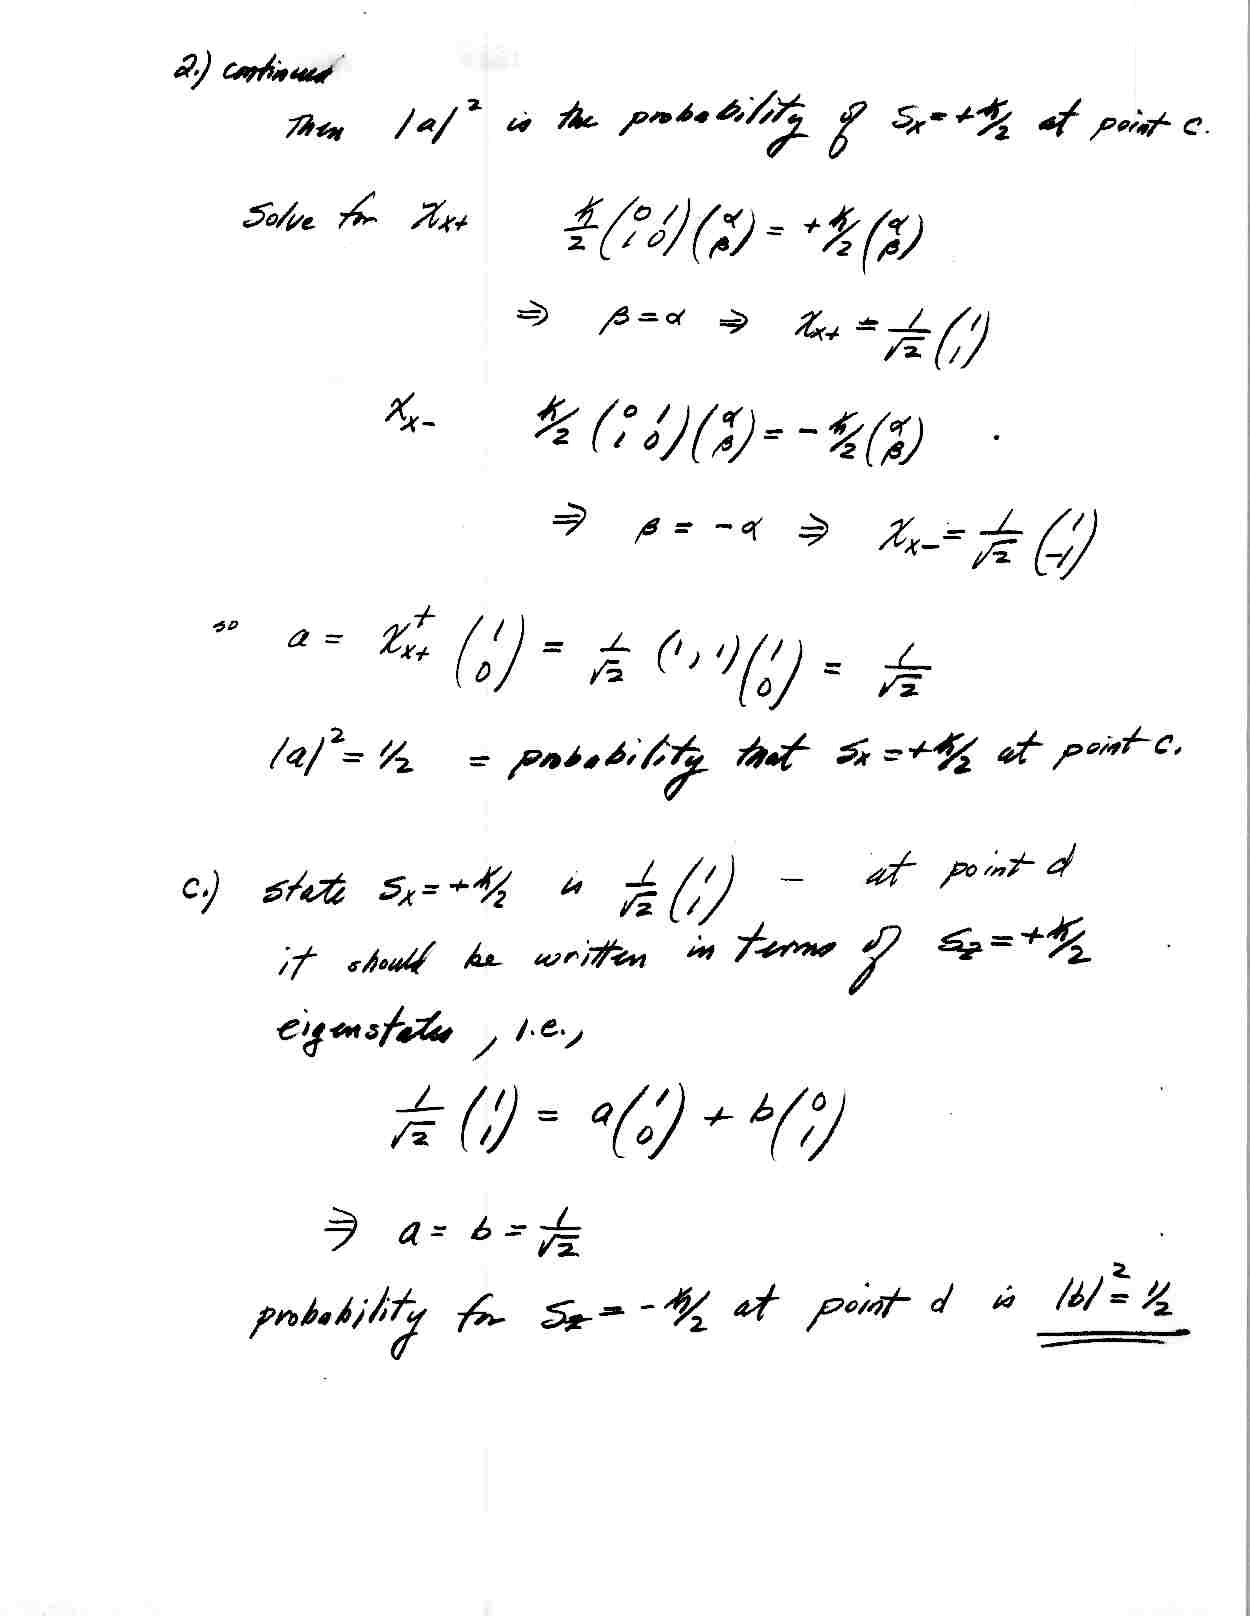 2.) continued
Then |a|² is the probability of Sx = +ħ/2 at point c.
Solve for χx+ ħ/2 (0 1; 1 0)(α; β) = +ħ/2 (α; β)
⇒ β = α ⇒ χx+ = 1/√2 (1; 1)
χx- ħ/2 (0 1; 1 0)(α; β) = -ħ/2 (α; β)
⇒ β = -α ⇒ χx- = 1/√2 (1; -1)
so a = χx+† (1; 0) = 1/√2 (1, 1)(1; 0) = 1/√2
|a|² = 1/2 = probability that Sx = +ħ/2 at point c.
c.) state Sx = +ħ/2 is 1/√2 (1; 1) - at point d
it should be written in terms of Sz = +ħ/2
eigenstates, i.e.,
1/√2 (1; 1) = a(1; 0) + b(0; 1)
⇒ a = b = 1/√2
probability for Sz = -ħ/2 at point d is |b|² = 1/2